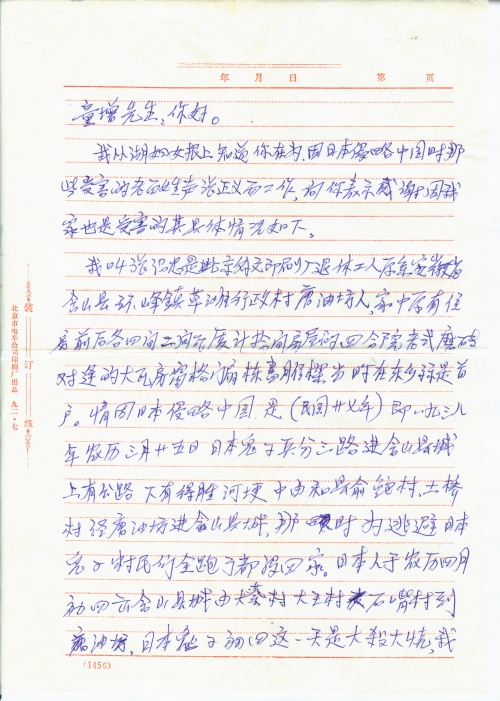 年 月 日 第 页
童增先生,你好。
我从湖北妇女报上知道你在为因日本侵略中国时那
些受害的老百姓声张正义而工作,向你表示感谢,因我
家也是受害的其具体情况如下。
我叫张识忠是北京 印刷厂退休工人原系安徽省
含山县环峰镇革班行政村唐油坊人,家中原有住
着前后各四间 计拾间房屋的四合院老式
对逢的大瓦房 当时在东乡 是首
户。情因日本侵略中国是(民国廿七年)即一九三八
年农历三月廿五日日本鬼子兵分三路进含山县城
上有公路下有得胜河埂中由和县俞 村、土桥
村经唐油坊进含山县城,那时为逃避日本
鬼子村民们全跑了都没回家。日本人于农历四月
初四 含山县城由大 村大王村 石嘴村到
唐油坊,日本鬼子初四这一天是大殺大烧,我
(1456)
装订线
北京市电车公司印刷厂出品 九二·七